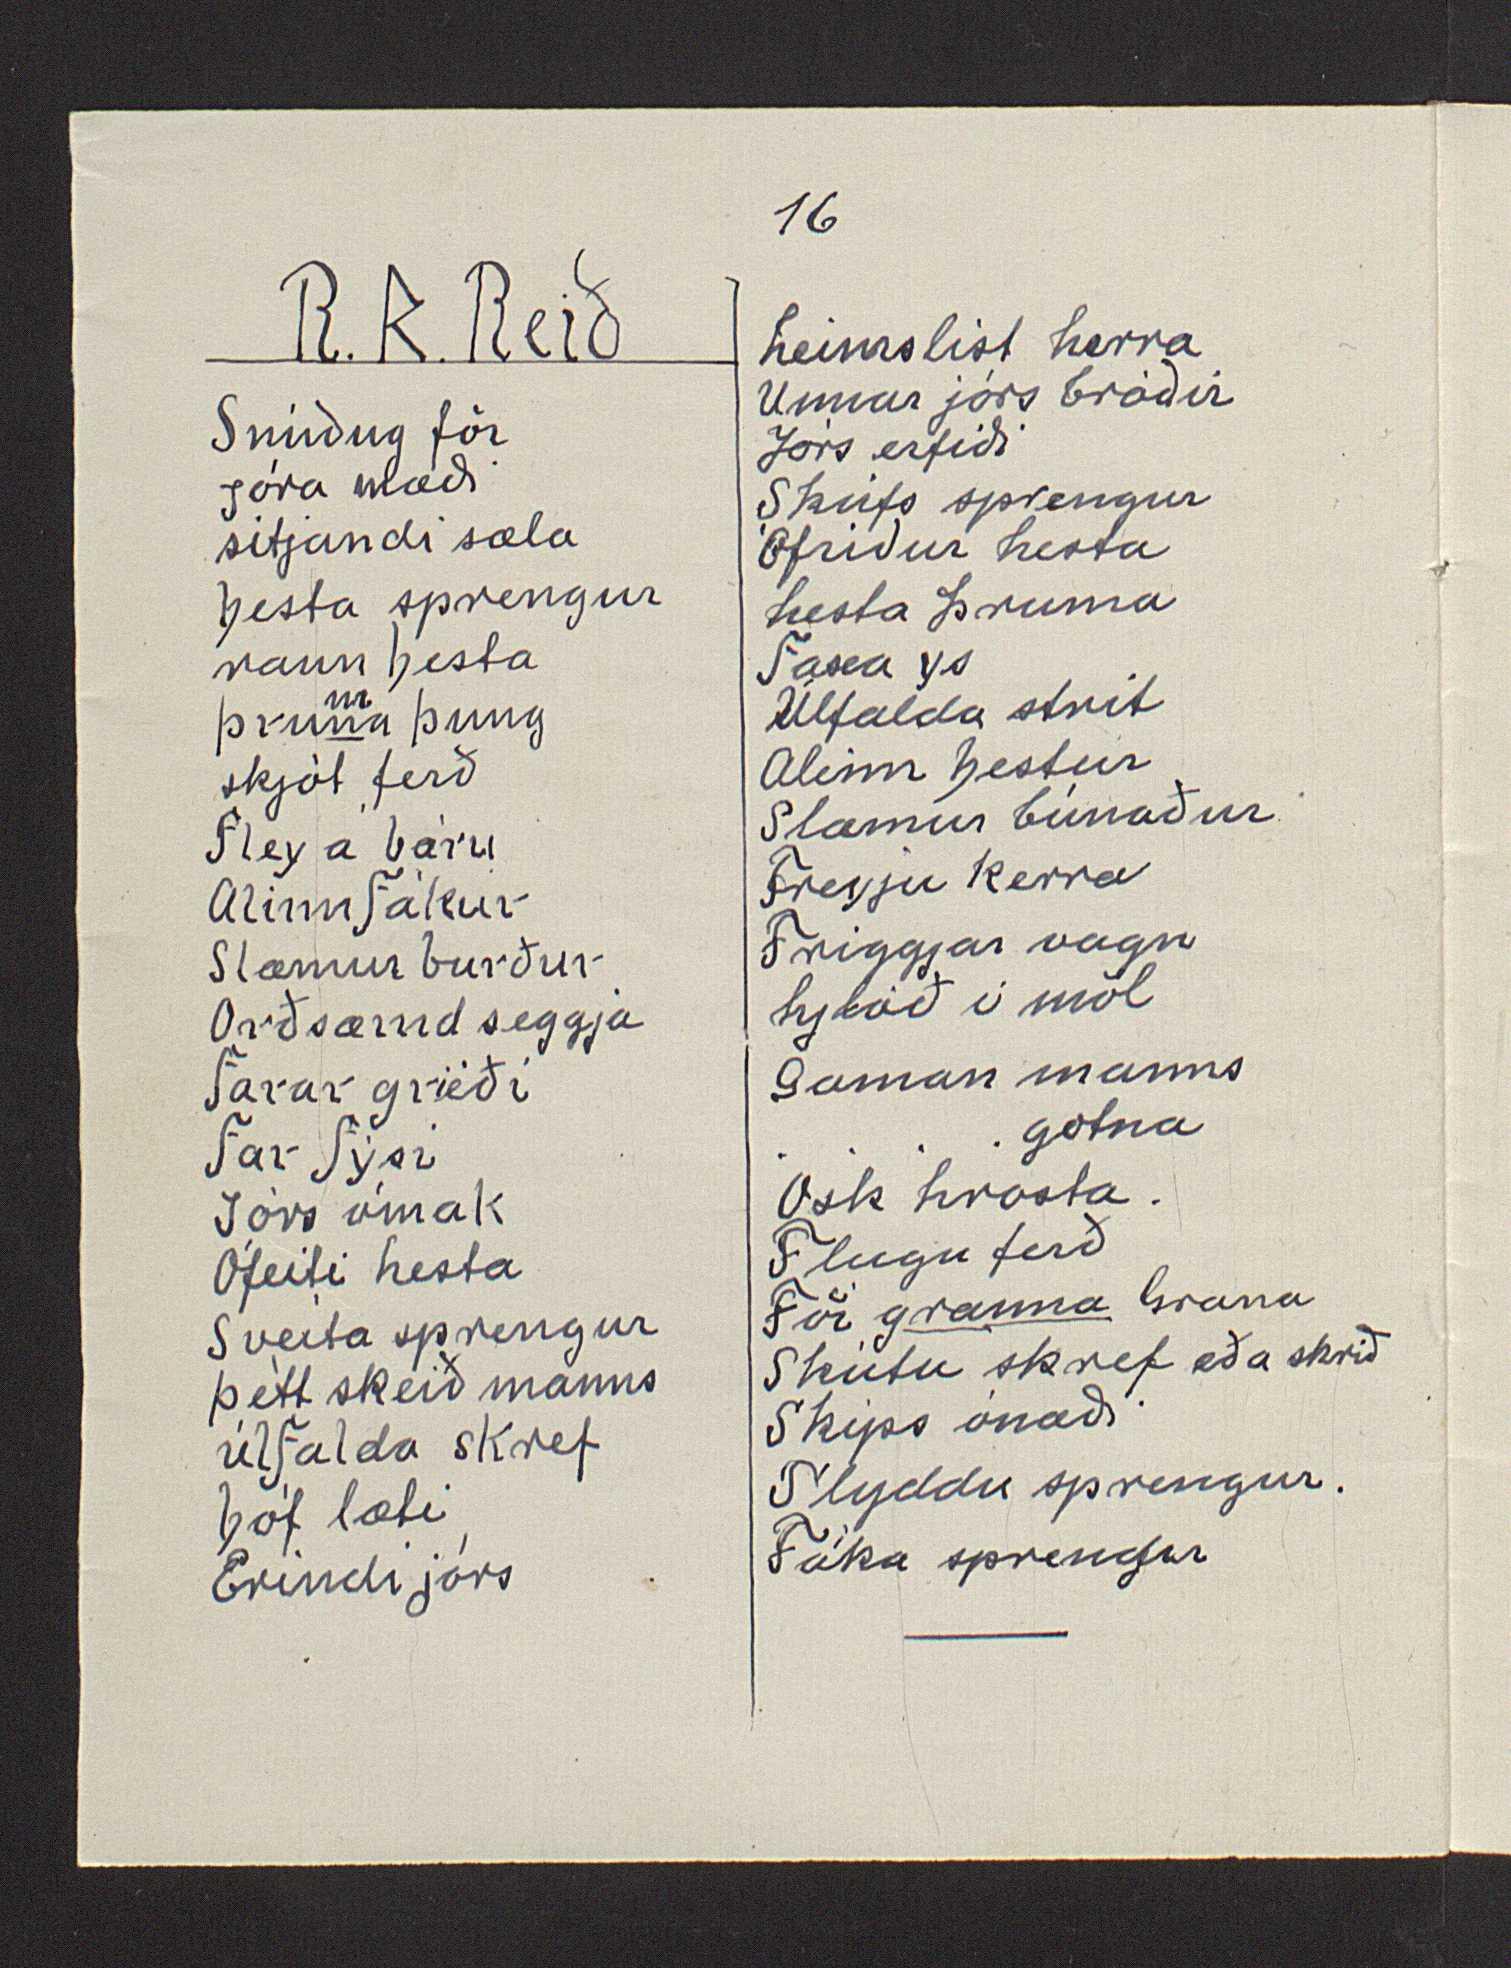 16
R. R. Reið
Snúðug för
jóra mæði
sitjandi sæla
hesta sprengur
raun hesta
þrumma þung
skjót ferð
Fley á báru
Alinn fákur
Slæmur burður
Orðsæmd seggja
Farar græði
Far fýsi
Jórs ómak
Ófeiti hesta
Sveita sprengur
þétt skeið manns
úlfalda skref
hóf læti
Erindi jórs
heimslist herra
Unnar jórs bróðir
Jórs erfiði
Skúfs sprengur
Ófriður hesta
hesta þruma
Faxa ys
Úlfalda strit
Alinn hestur
Slæmur búnaður
Freyju kerra
Friggjar vagn
hylóð í möl
Gaman manns
. . . . gotna
Ósk hrosta.
Flugu ferð
För granna Grana
Skútu skref eða skrið
Skips ónæði
Slyddu sprengur.
Fáka sprengur